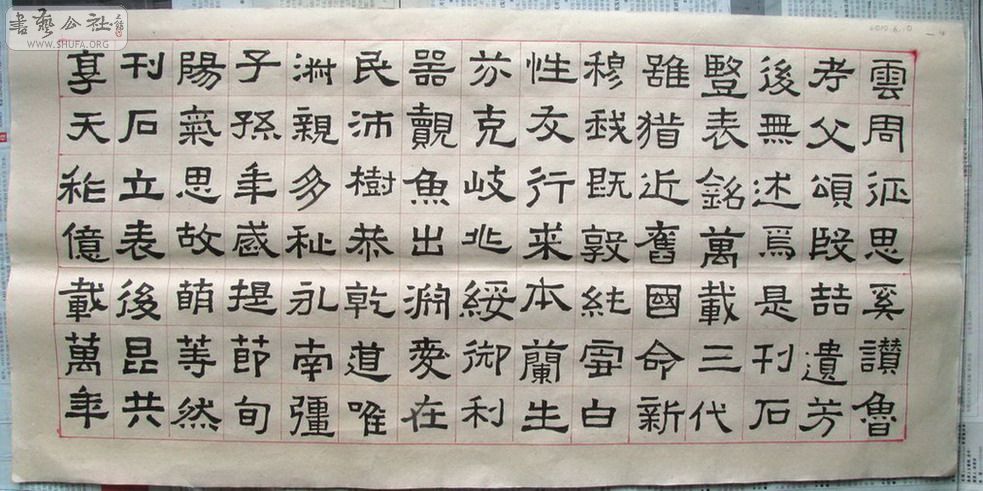 書藝公社
WWW.SHUFA.ORG
雲周征思奚讚魯
孝父頌殷喆遺芳
後無述焉是刊石
豎表銘萬載三代
雖猶近舊國命新
穆我既敦純雪白
性友行来本蘭生
芬克岐兆綏御利
器覿魚出淵愛在
民沛樹恭乾道唯
淑親多祉永南疆
子孫年感提節旬
陽氣思故萌等然
刊石立表後昆共
享天祚億載萬年